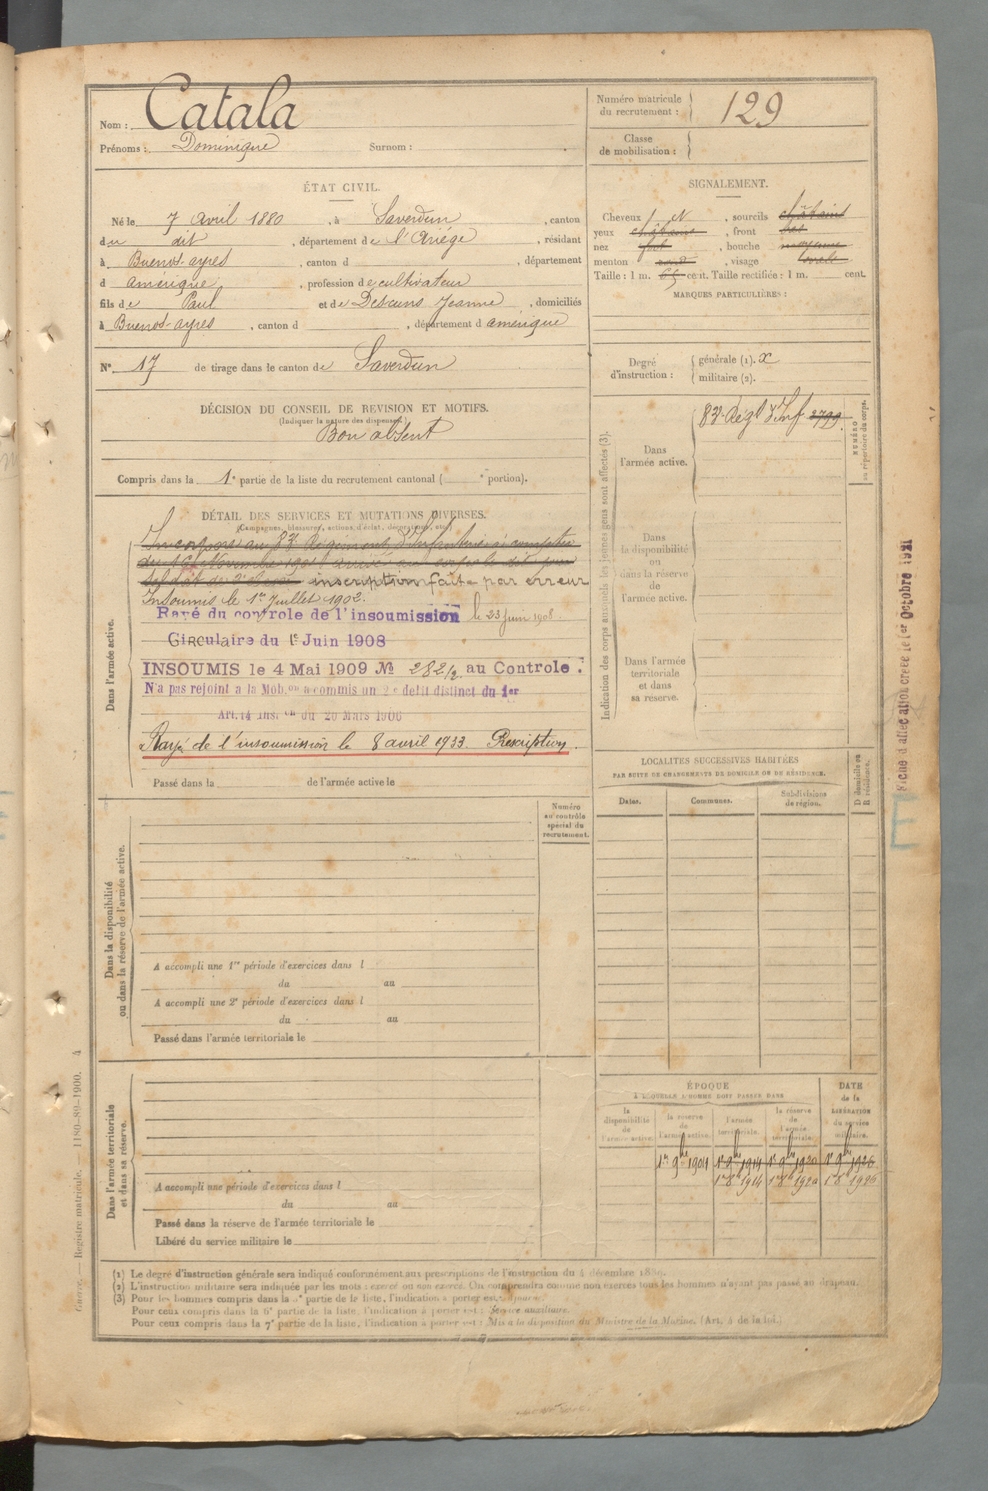 Nom : Catala
Prénoms : Dominique Surnom :
Numéro matricule du recrutement : 129
Classe de mobilisation :
ÉTAT CIVIL.
Né le 7 avril 1880, à Saverdun, canton
du dit, département de l'Ariège, résidant
à Buenos-ayres, canton d , département
d amérique, profession de cultivateur
fils de Paul et de Descuns Jeanne, domiciliés
à Buenos-ayres, canton d , département d amérique
N° 17 de tirage dans le canton de Saverdun
SIGNALEMENT.
Cheveux , sourcils châtains
yeux châtains, front bas
nez fort, bouche moyenne
menton rond, visage ovale
Taille : 1 m. 65 cent. Taille rectifiée : 1 m. cent.
MARQUES PARTICULIÈRES :
Degré d'instruction : générale (1). x
militaire (2).
DÉCISION DU CONSEIL DE REVISION ET MOTIFS.
(Indiquer la nature des dispenses.)
Bon absent
Compris dans la 1e partie de la liste du recrutement cantonal ( e portion).
DÉTAIL DES SERVICES ET MUTATIONS DIVERSES.
(Campagnes, blessures, actions d'éclat, décorations, etc.)
Dans l'armée active.
Incorporé au 83e Régiment d'Infanterie à compter
du 16 Novembre 1901 arrivé au corps le dit jour
soldat de 2e classe inscription faite par erreur
Insoumis le 1er Juillet 1902.
Rayé du controle de l'insoumission le 23 juin 1908.
Circulaire du 1e Juin 1908
INSOUMIS le 4 Mai 1909 No 282/2 au Controle :
N'a pas rejoint a la Mob.on a commis un 2e delit distinct du 1er
Art.14 Inst on du 20 Mars 1906
Rayé de l'insoumission le 8 avril 1933. Prescription.
Passé dans la de l'armée active le
Indication des corps auxquels les jeunes gens sont affectés (3).
Dans l'armée active.
83e Régt d'Inf 2799
NUMÉRO au répertoire du corps.
Dans la disponibilité ou dans la réserve de l'armée active.
Dans l'armée territoriale et dans sa réserve.
Fiche d'affectation créée le 1er Octobre 1921
LOCALITÉS SUCCESSIVES HABITÉES
PAR SUITE DE CHANGEMENTS DE DOMICILE OU DE RÉSIDENCE.
Dates. Communes. Subdivisions de région. D domicile ou R résidence.
Numéro au contrôle spécial du recrutement.
Dans la disponibilité ou dans la réserve de l'armée active.
A accompli une 1re période d'exercices dans l
du au
A accompli une 2e période d'exercices dans l
du au
Passé dans l'armée territoriale le
Dans l'armée territoriale et dans sa réserve.
A accompli une période d'exercices dans l
du au
Passé dans la réserve de l'armée territoriale le
Libéré du service militaire le
ÉPOQUE
À LAQUELLE L'HOMME DOIT PASSER DANS
la disponibilité de l'armée active. la réserve de l'armée active. l'armée territoriale. la réserve de l'armée territoriale. DATE de la LIBÉRATION du service militaire.
1er 9bre 1904 1er 9bre 1914 1er 9bre 1920 1er 9bre 1926
1er 8bre 1914 1er 8bre 1920 1er 8bre 1926
(1) Le degré d'instruction générale sera indiqué conformément aux prescriptions de l'instruction du 4 décembre 1889.
(2) L'instruction militaire sera indiquée par les mots : exercé ou non exercé. On comprendra comme non exercés tous les hommes n'ayant pas passé au drapeau.
(3) Pour les hommes compris dans la partie de la liste, l'indication à porter est
Pour ceux compris dans la 6e partie de la liste, l'indication à porter est : Service auxiliaire.
Pour ceux compris dans la 7e partie de la liste, l'indication à porter est : Mis à la disposition du Ministre de la Marine. (Art. 4 de la loi.)
Guerre. — Registre matricule. — 1180-89-1900. 4